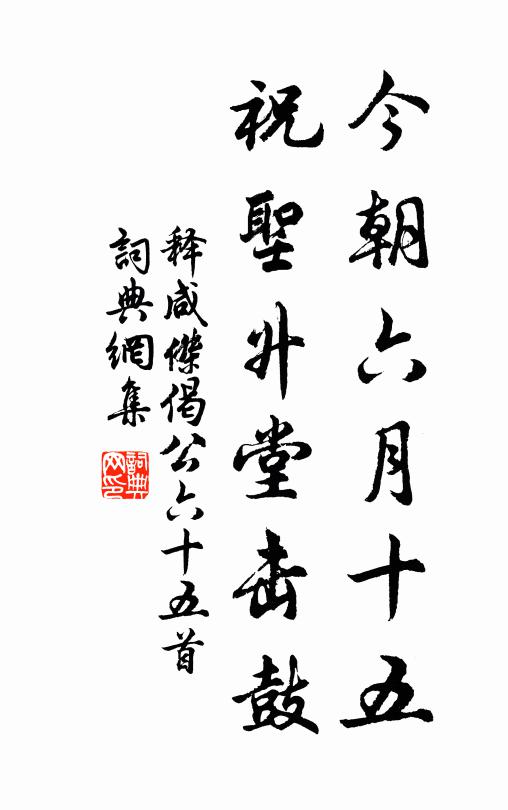 今朝六月十五
祝聖升堂击鼓
释咸傑偈公六十五首
詞典網集
詞典網印